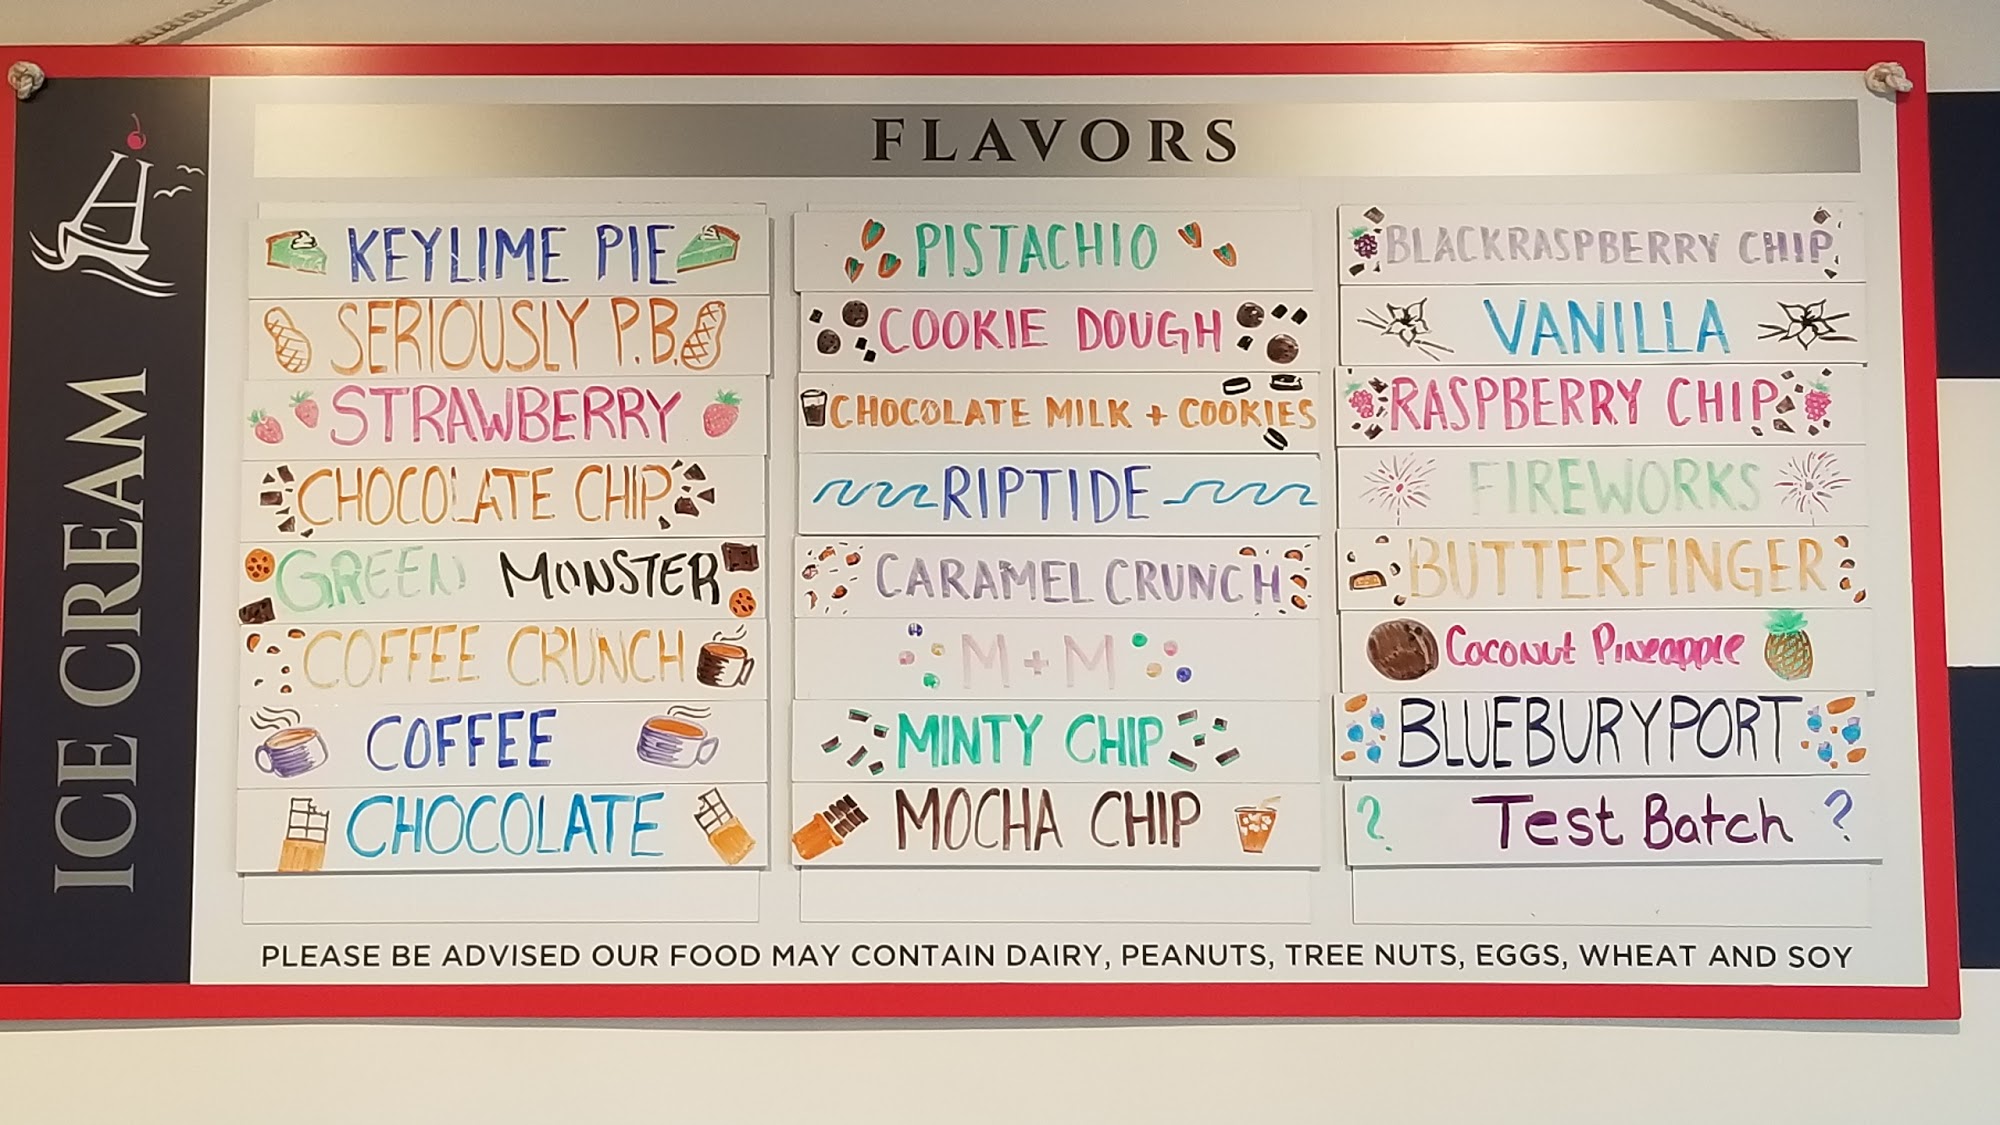 FLAVORS
ICE CREAM
KEYLIME PIE
SERIOUSLY P.B.
STRAWBERRY
CHOCOLATE CHIP
GREEN MONSTER
COFFEE CRUNCH
COFFEE
CHOCOLATE
PISTACHIO
COOKIE DOUGH
CHOCOLATE MILK + COOKIES
RIPTIDE
CARAMEL CRUNCH
M + M
MINTY CHIP
MOCHA CHIP
BLACKRASPBERRY CHIP
VANILLA
RASPBERRY CHIP
FIREWORKS
BUTTERFINGER
Coconut Pineapple
BLUEBURYPORT
? Test Batch ?
PLEASE BE ADVISED OUR FOOD MAY CONTAIN DAIRY, PEANUTS, TREE NUTS, EGGS, WHEAT AND SOY